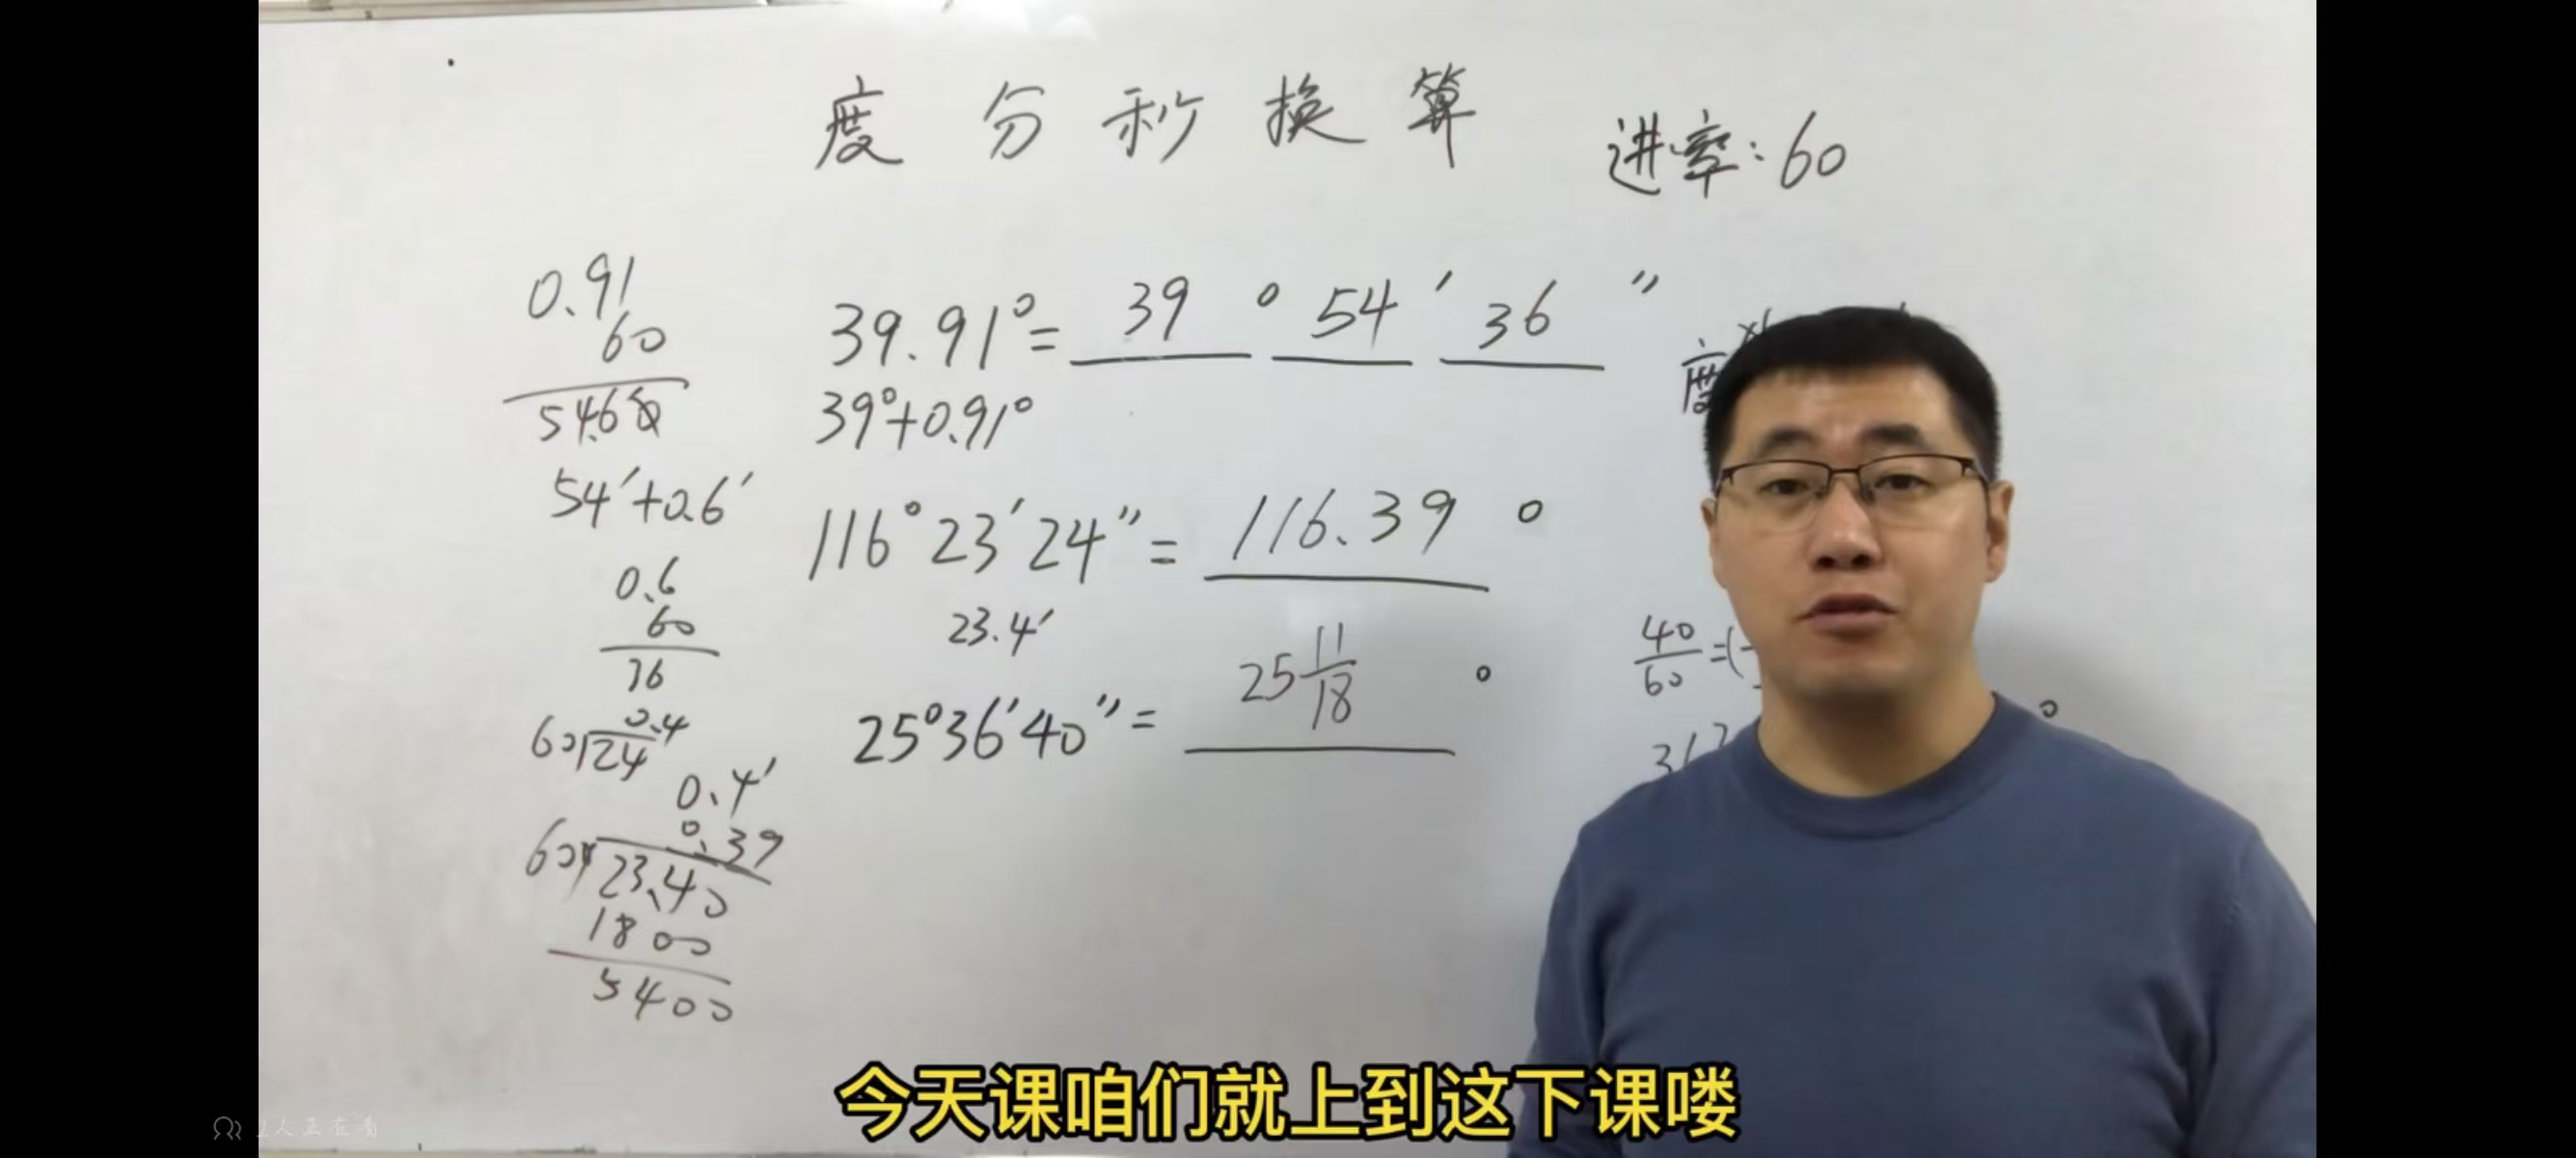 度分秒换算
进率:60
39.91°= 39° 54′ 36″
39°+0.91°
116°23′24″= 116.39°
23.4′
25°36′40″= 25 11/18 °
0.91
60
54.60
54′+0.6′
0.6
60
36
0.4
60)24
0.4′
0.39
60)23.40
1800
5400
度
40/60=(
31
°
今天课咱们就上到这下课喽
1人正在看